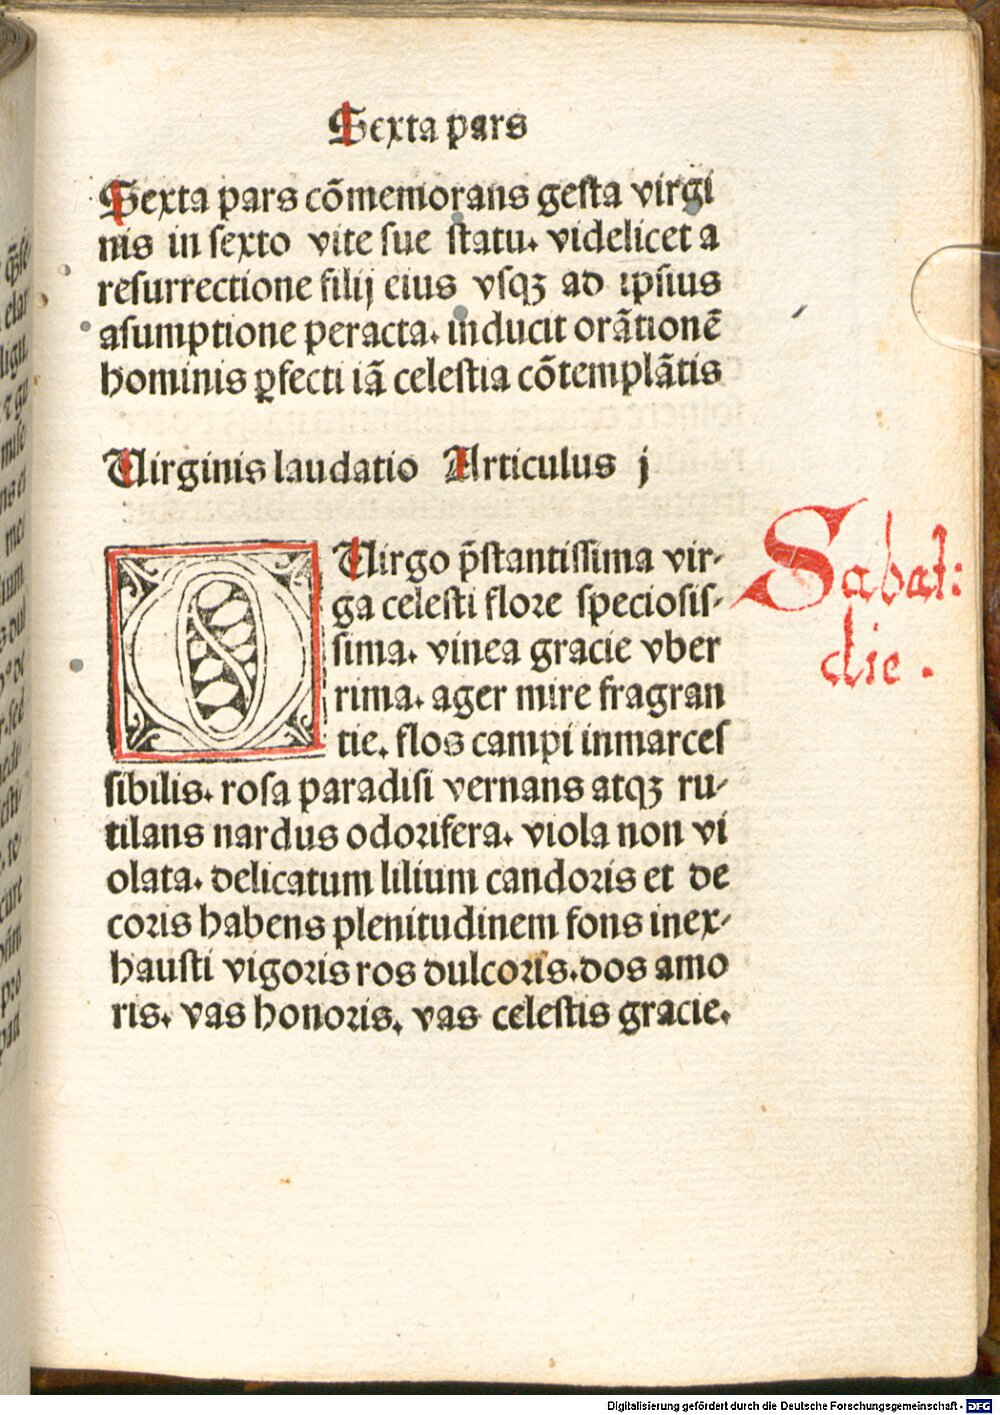 Sexta pars
Sexta pars cōmemorans gesta virgi
nis in sexto vite sue statu. videlicet a
resurrectione filij eius vsqꝫ ad ipsius
asumptione peracta. inducit orātionē
hominis ꝑfecti iā celestia cōtemplātis
Uirginis laudatio Articulus j
O Uirgo p̄stantissima vir-
ga celesti flore speciosis-
sima. vinea gracie vber
rima. ager mire fragran
tie. flos campi inmarces
sibilis. rosa paradisi vernans atqꝫ ru-
tilans nardus odorifera. viola non vi
olata. delicatum lilium candoris et de
coris habens plenitudinem fons inex-
hausti vigoris ros dulcoris. dos amo
ris. vas honoris. vas celestis gracie.
Sabat:
die.
Digitalisierung gefördert durch die Deutsche Forschungsgemeinschaft - DFG